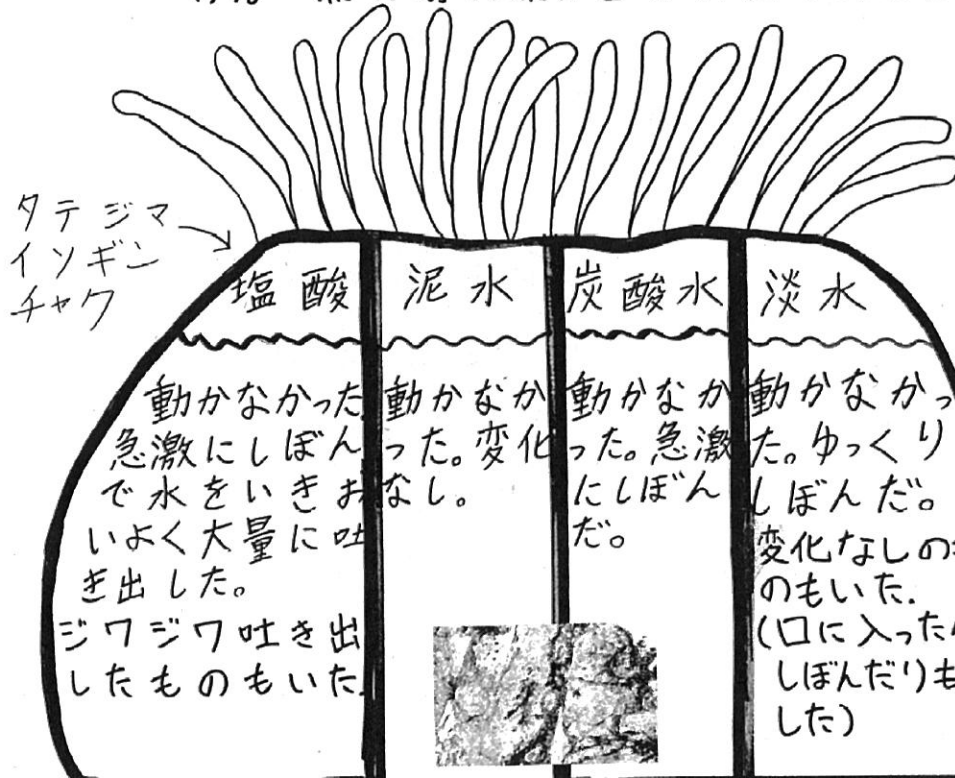 タテジマ
イソギン
チャク
塩酸
動かなかった
急激にしぼん
で水をいきお
いよく大量に吐
き出した。
ジワジワ吐き出
したものもいた.
泥水
動かなか
った。変化
なし。
炭酸水
動かなか
った。急激
にしぼん
だ。
淡水
動かなかっ
た。ゆっくり
しぼんだ。
変化なしの
のもいた.
(口に入った
しぼんだり
した)